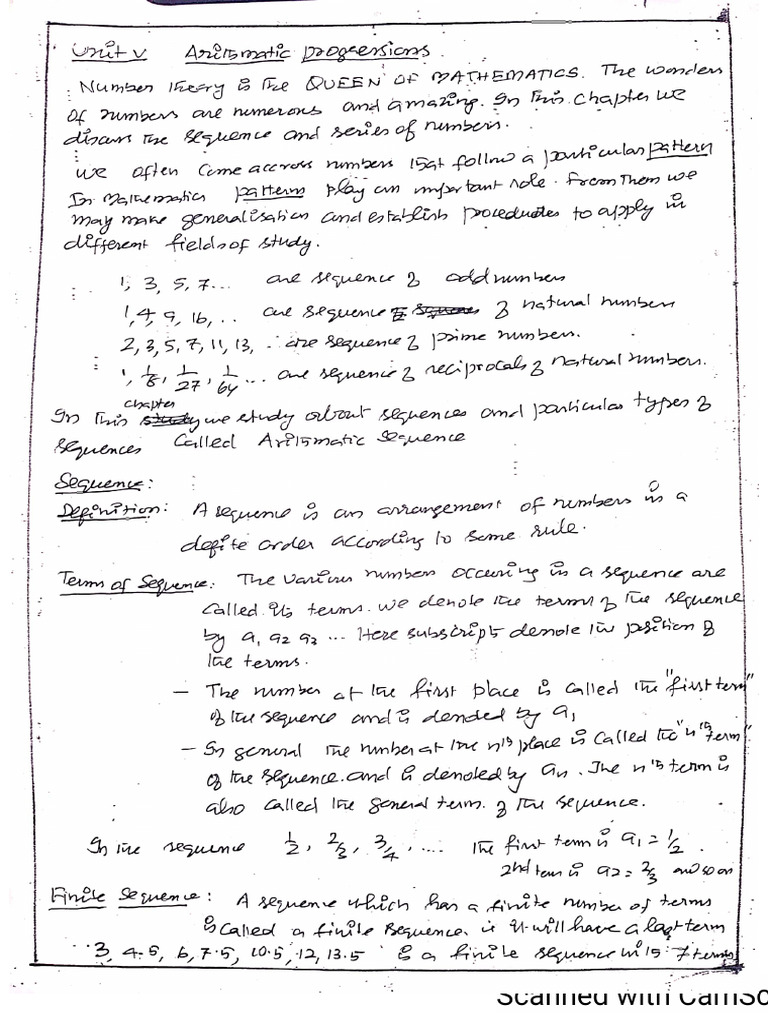 Unit V Arithmatic progressions.
Number theory is the QUEEN OF MATHEMATICS. The wonders
of numbers are numerous and amazing. In this chapter we
discuss the sequence and series of numbers.
we often come accross numbers that follow a particular pattern
In Mathematics patterns play an important role. From them we
may make generalisation and establish procedutes to apply in
different fields of study.
1, 3, 5, 7... are sequence of odd numbers
1, 4, 9, 16, .. are sequence of natural numbers
2, 3, 5, 7, 11, 13, . are sequence of prime numbers.
1, 1/8, 1/27, 1/64 ... are sequence of reciprocals of natural numbers.
chapter
In this study we study about sequences and particular types of
sequences Called Arithmatic Sequence
Sequence:
Definition: A sequence is an arrangement of numbers in a
defite order according to some rule.
Terms of Sequence: The various numbers occuring in a sequence are
called its terms. we denote the terms of the sequence
by a, a2 a3 ... Here subscripts denote the position of
the terms.
— The number at the first place is called the "first term"
of the sequence and is denoted by a1
— In general the number at the nth place is called the "nth term"
of the sequence. and is denoted by an. The nth term is
also called the general term. of the sequence.
In the sequence 1/2, 2/3, 3/4, .... the first term is a1 = 1/2.
2nd term is a2 = 2/3 and so on
Finite Sequence: A sequence which has a finite number of terms
is called a finite sequence. ie it will have a last term
3, 4.5, 6, 7.5, 10.5, 12, 13.5 is a finite sequence with 7 terms
Scanned with CamSc